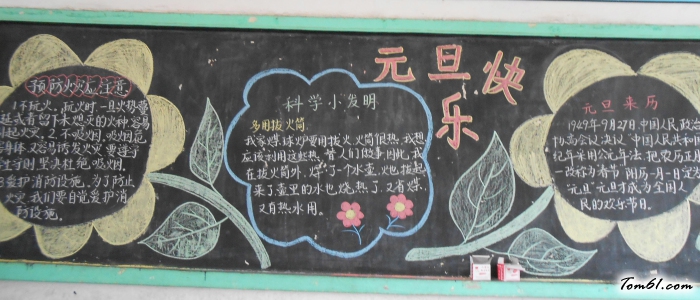 元旦快乐
预防火灾注意
1.不玩火。玩火时一旦火势蔓
延或者留下未熄灭的火种容易
引起火灾。2.不吸烟。吸烟危
害身体又容易诱发火灾要逐步
坚决杜绝吸烟。
爱护消防设施。为了防止
火灾我们要自觉爱护消
防设施。
科学小发明
多用拔火筒
我家煤球炉要用拔火筒很热,我想
应该利用这些热
在拔火筒外,焊了一个水壶。火拔起
来了壶里的水也烧热了又有煤
又有热水用。
元旦来历
1949年9月27日,中国人民政治
协商会议决议"中国人民共和国
纪年采用公元年法,把农历正月
一改称为春节 阴历一月一日定为
元旦"元旦才成为全国人
民的欢乐节日。
Tom61.com